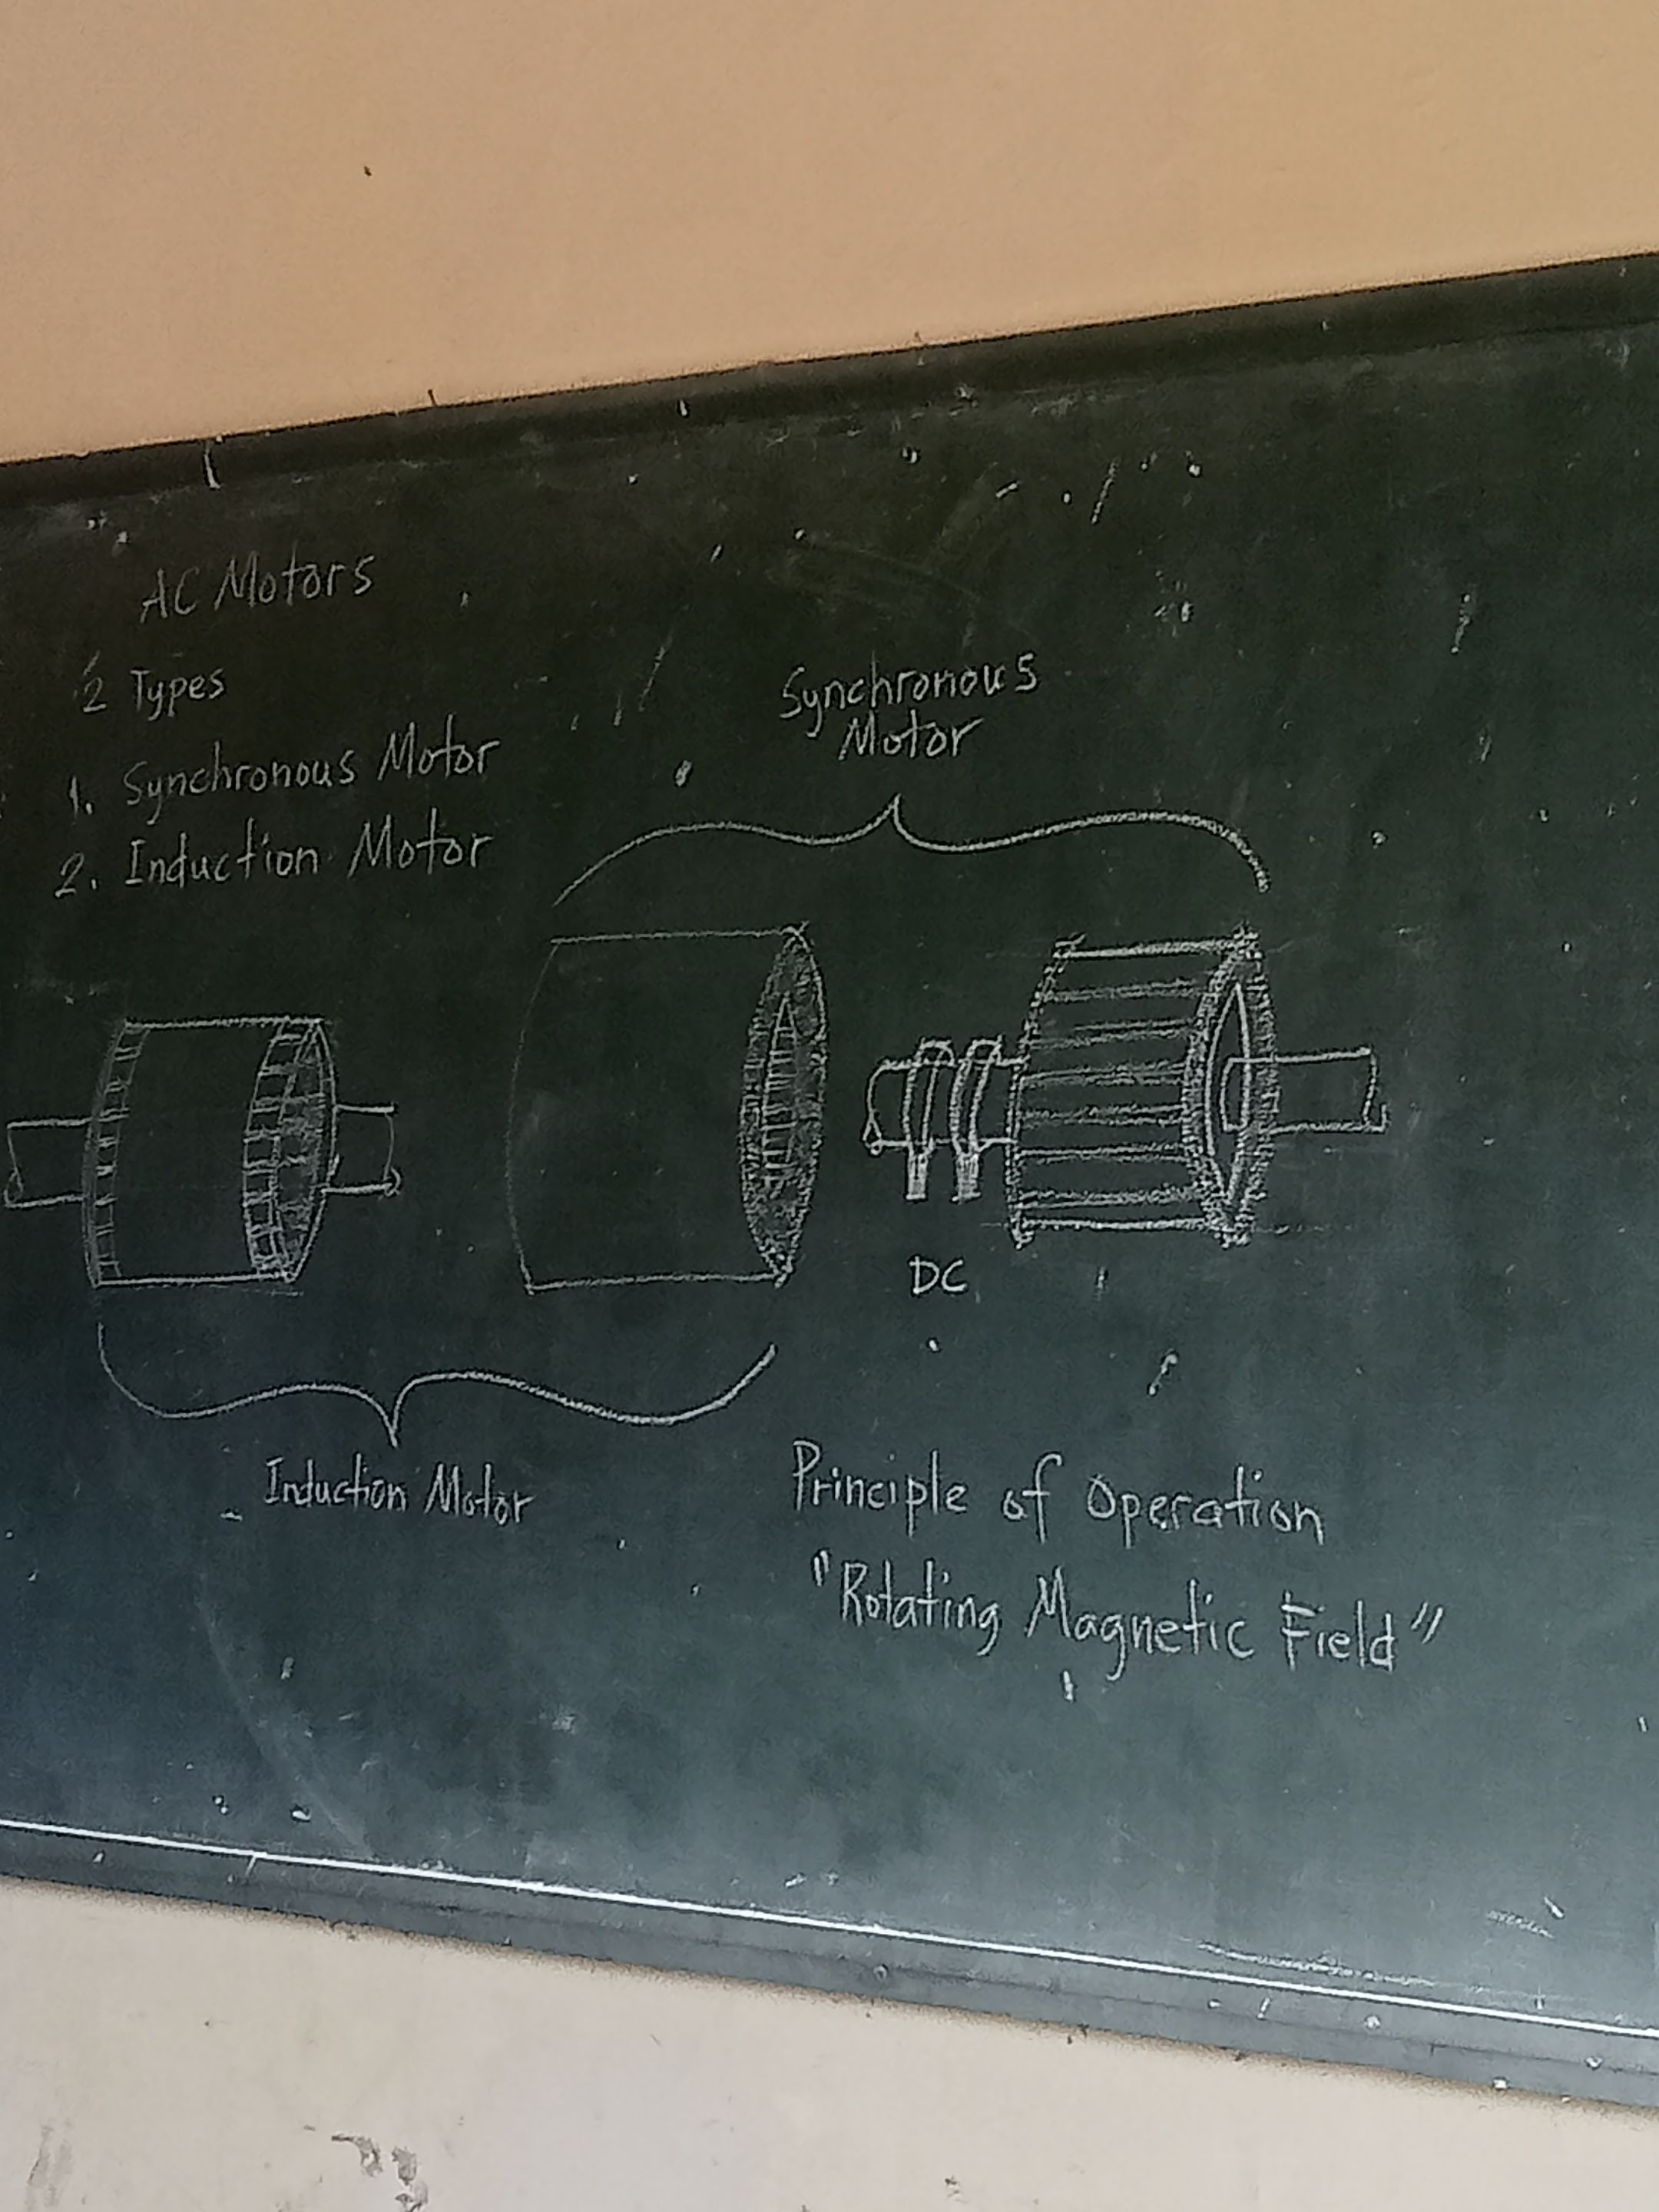 AC Motors
2 Types
1. Synchronous Motor
2. Induction Motor
Synchronous
Motor
DC
Induction Motor
Principle of Operation
"Rotating Magnetic Field"